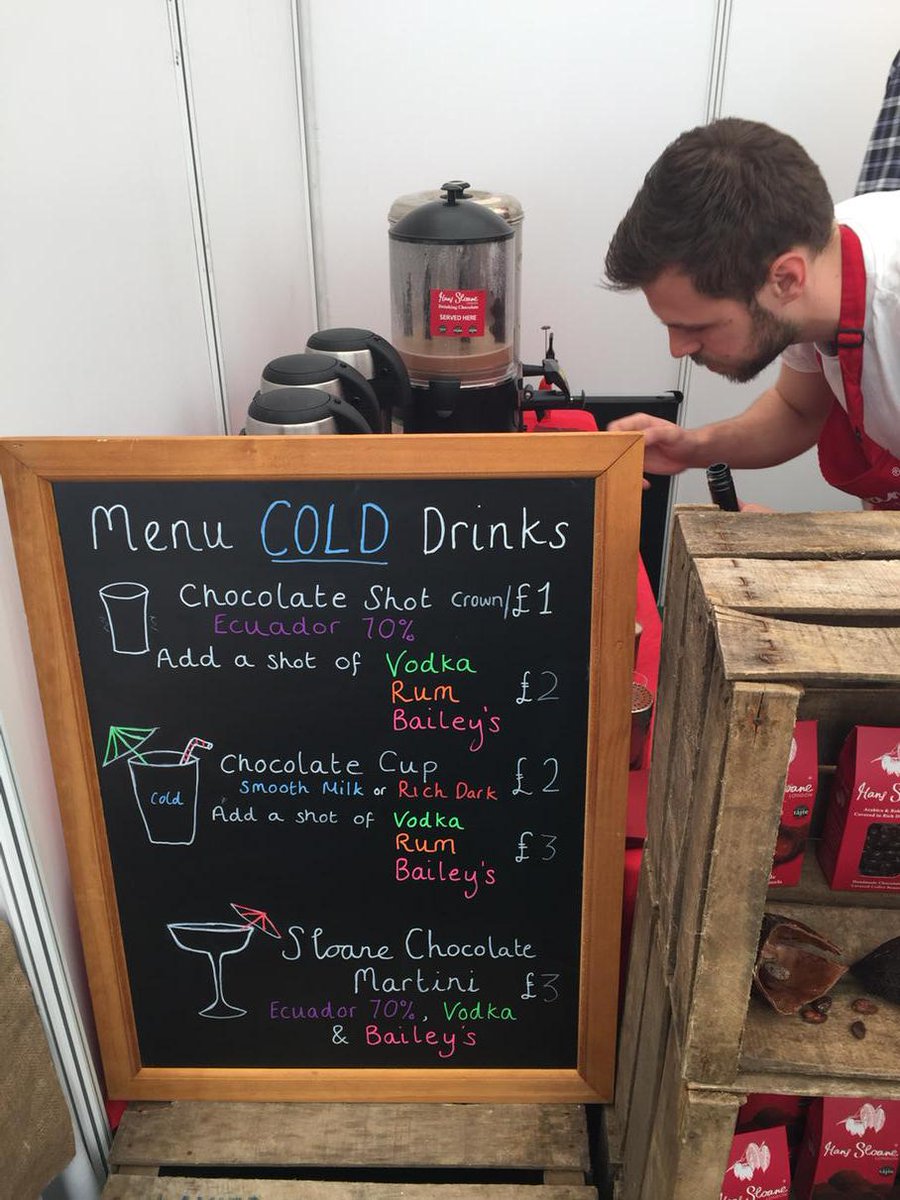 Hans Sloane
Drinking Chocolate
SERVED HERE
Menu COLD Drinks
Chocolate Shot Crown/£1
Ecuador 70%
Add a shot of Vodka
Rum £2
Bailey's
Chocolate Cup £2
Smooth Milk or Rich Dark
Cold
Add a shot of Vodka
Rum £3
Bailey's
Sloane Chocolate
Martini £3
Ecuador 70%, Vodka
& Bailey's
Hans S
LONDON
Hans Sloane
LONDON
Hans Sloane